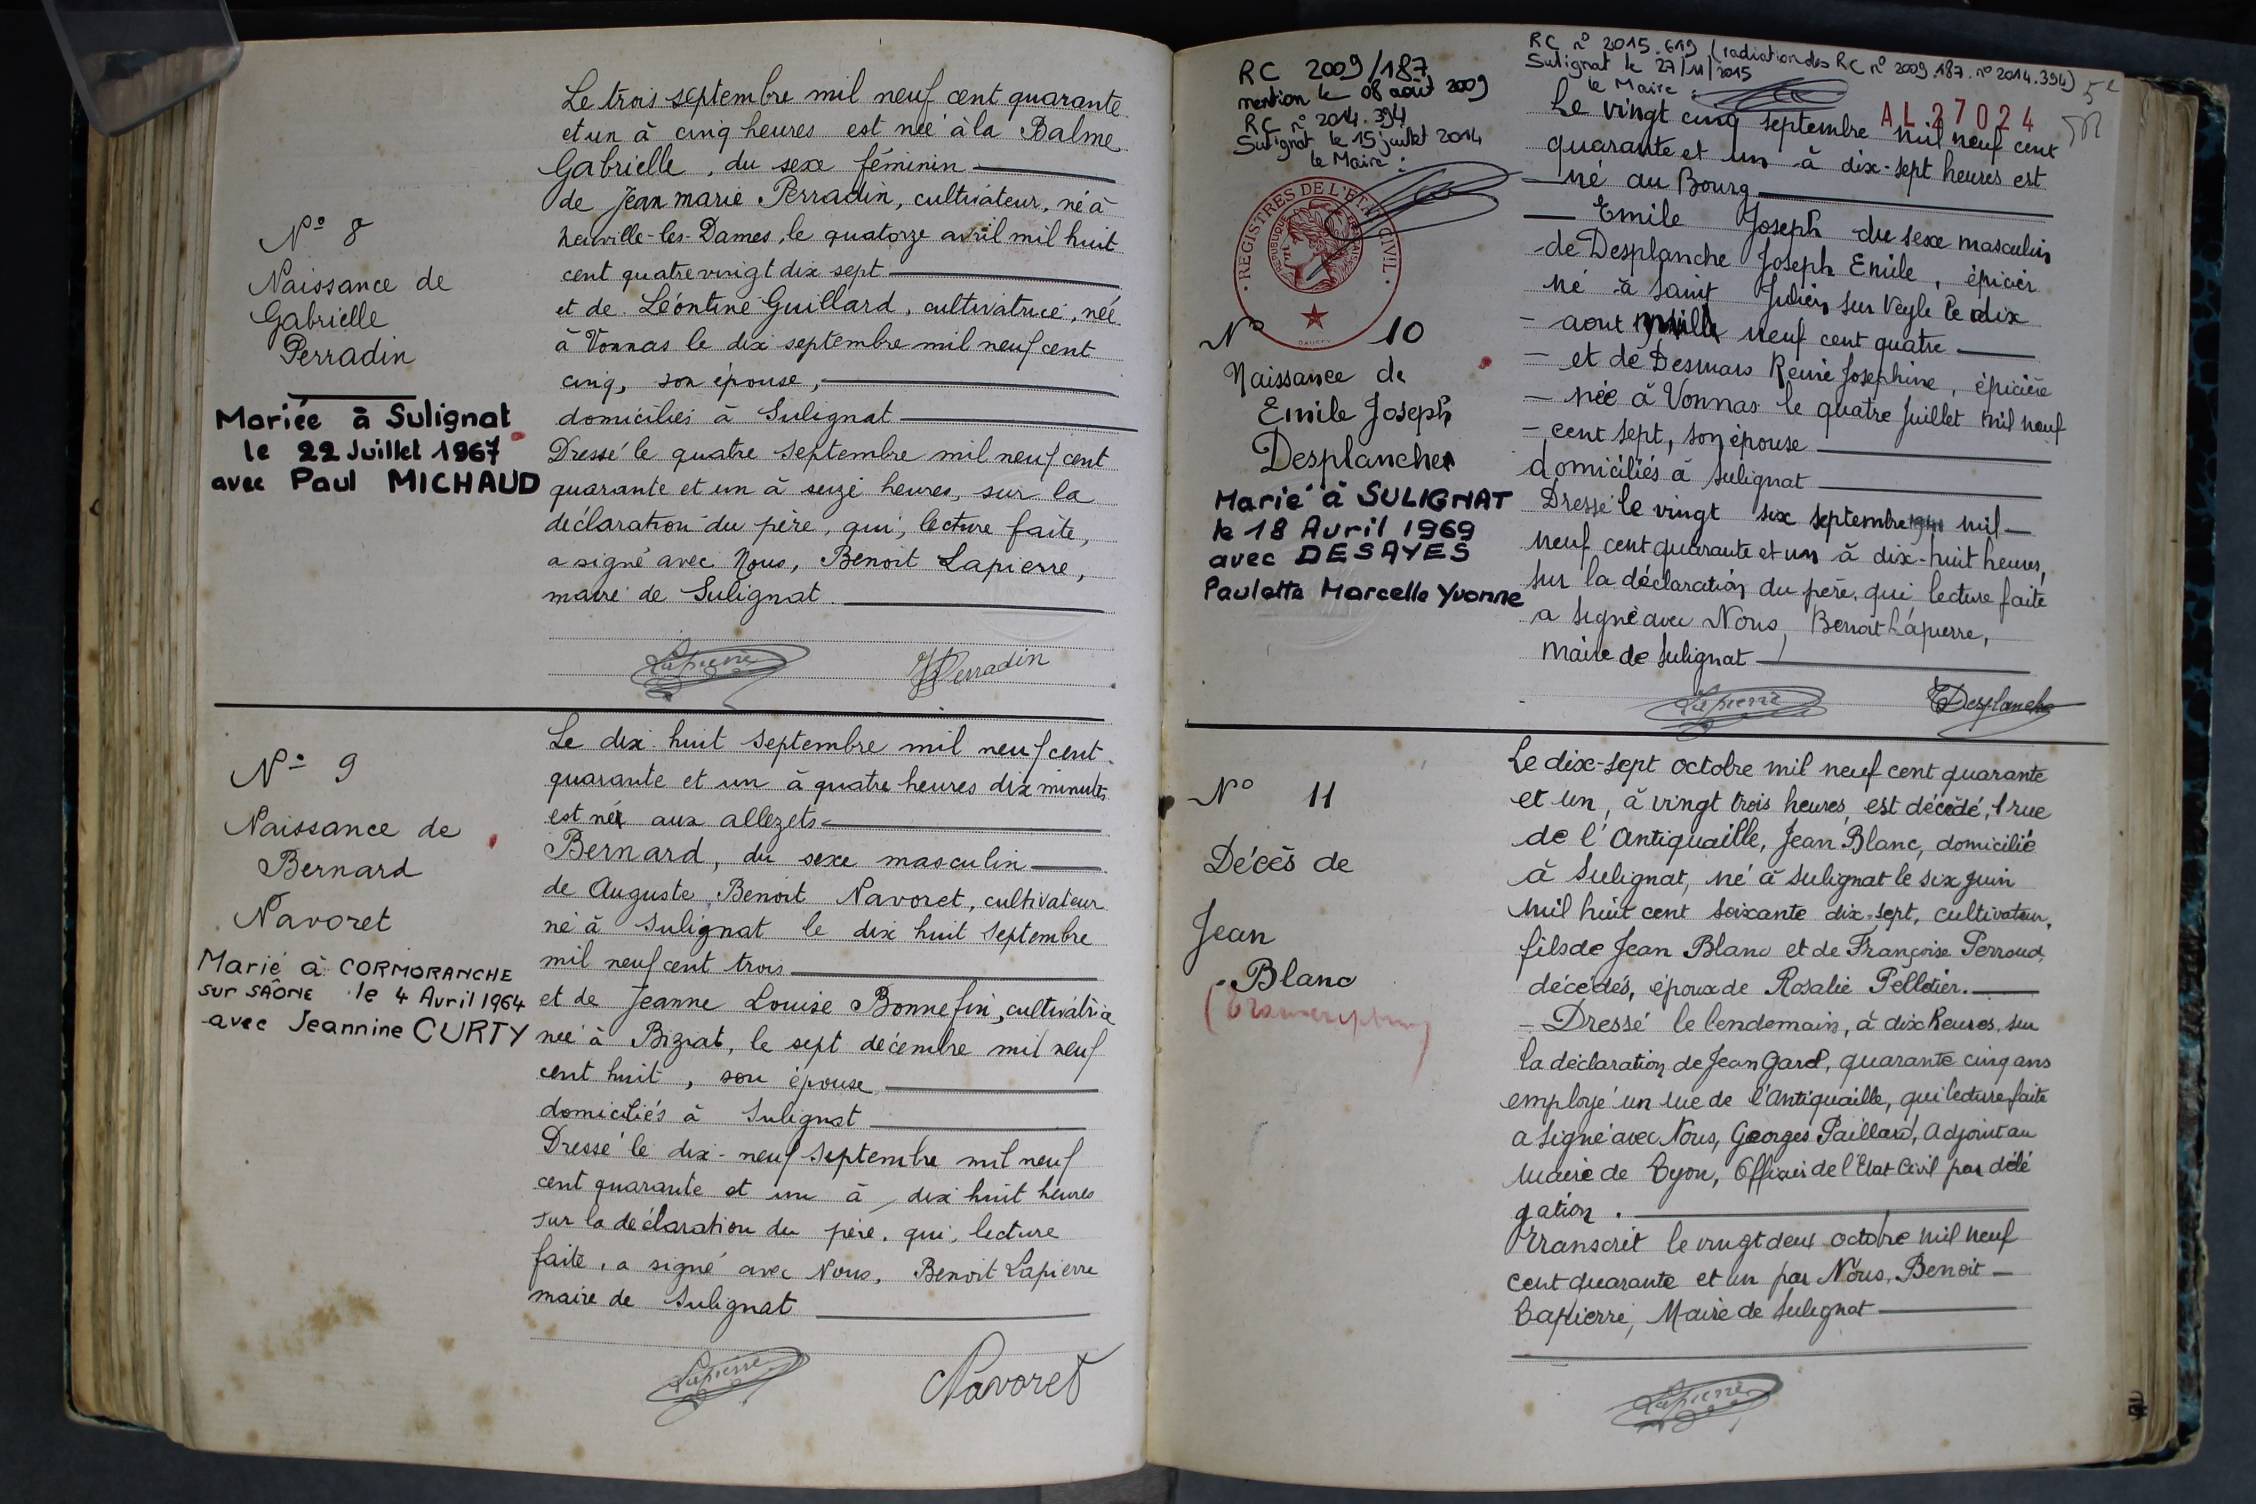 Le trois septembre mil neuf cent quarante
et un à cinq heures est née à la Balme
Gabrielle, du sexe féminin
de Jean marie Perradin, cultivateur, né à
Neuville-les-Dames, le quatorze avril mil huit
cent quatre vingt dix sept
et de Léontine Guillard, cultivatrice, née
à Vonnas le dix septembre mil neuf cent
cinq, son épouse,
domiciliés à Sulignat
Dressé le quatre septembre mil neuf cent
quarante et un à seize heures, sur la
déclaration du père, qui, lecture faite,
a signé avec Nous, Benoit Lapierre,
maire de Sulignat
Lapierre
Perradin
N° 8
Naissance de
Gabrielle
Perradin
Mariée à Sulignat
le 22 Juillet 1967
avec Paul MICHAUD
N° 9
Naissance de
Bernard
Navoret
Marié à CORMORANCHE
sur SAÔNE le 4 Avril 1964
avec Jeannine CURTY
Le dix huit septembre mil neuf cent
quarante et un à quatre heures dix minutes
est né aux allezets
Bernard, du sexe masculin
de Auguste, Benoit Navoret, cultivateur
né à Sulignat le dix huit septembre
mil neuf cent trois
et de Jeanne Louise Bonnefin, cultivatrice
née à Biziat, le sept décembre mil neuf
cent huit, son épouse
domiciliés à Sulignat
Dressé le dix-neuf septembre mil neuf
cent quarante et un à dix huit heures
sur la déclaration du père, qui, lecture
faite, a signé avec Nous, Benoit Lapierre
maire de Sulignat
Lapierre
Navoret
RC 2009/187
mention le 08 août 2009
RC n° 2014.394
Sulignat le 15 juillet 2014
le Maire :
REGISTRES DE L'ETAT CIVIL
REPUBLIQUE FRANCAISE
N° 10
Naissance de
Emile Joseph
Desplanche
Marié à SULIGNAT
le 18 Avril 1969
avec DESAYES
Paulette Marcelle Yvonne
RC n° 2015.619 (radiation des RC n° 2009.187. n° 2014.394)
Sulignat le 27/11/2015
le Maire :
AL27024
Le vingt cinq septembre mil neuf cent
quarante et un à dix-sept heures est
né au Bourg
Emile Joseph du sexe masculin
de Desplanche Joseph Emile, épicier
né à Saint Julien sur Veyle le dix
aout mil neuf cent quatre
et de Desmars Reine Josephine, épicière
née à Vonnas le quatre Juillet mil neuf
cent sept, son épouse
domiciliés à Sulignat
Dressé le vingt six septembre mil
neuf cent quarante et un à dix-huit heures,
sur la déclaration du père, qui lecture faite
a signé avec Nous, Benoit Lapierre,
Maire de Sulignat
Lapierre
Desplanche
N° 11
Décès de
Jean
Blanc
(Transcription)
Le dix-sept octobre mil neuf cent quarante
et un, à vingt trois heures, est décédé, 1 rue
de l'Antiquaille, Jean Blanc, domicilié
à Sulignat, né à Sulignat le six juin
mil huit cent soixante dix-sept, cultivateur,
fils de Jean Blanc et de Françoise Perroud,
décédés, époux de Rosalie Pelletier.
Dressé le lendemain, à dix heures, sur
la déclaration de Jean Gard, quarante cinq ans
employé un rue de l'Antiquaille, qui lecture faite
a signé avec Nous, Georges Paillard, Adjoint au
Maire de Lyon, Officier de l'Etat Civil par délé
gation.
Transcrit le vingt deux octobre mil neuf
cent quarante et un par Nous, Benoit
Lapierre, Maire de Sulignat
Lapierre